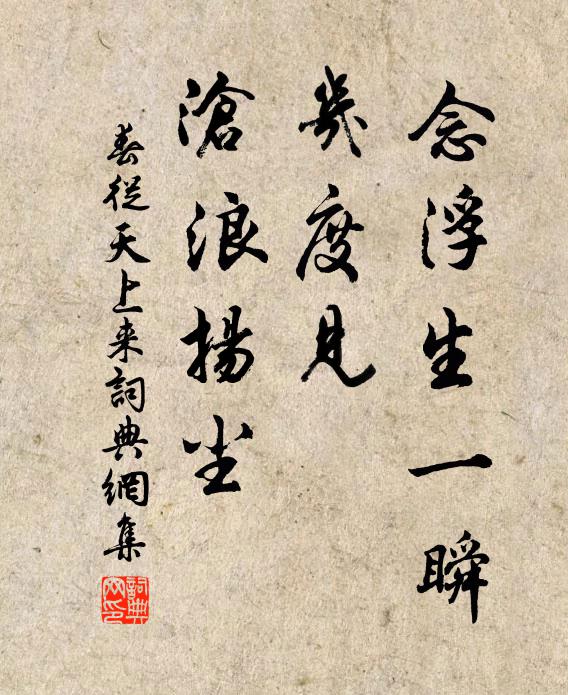 念浮生一瞬
幾度見
滄浪揚尘
春從天上来詞典網集
詞典
网印